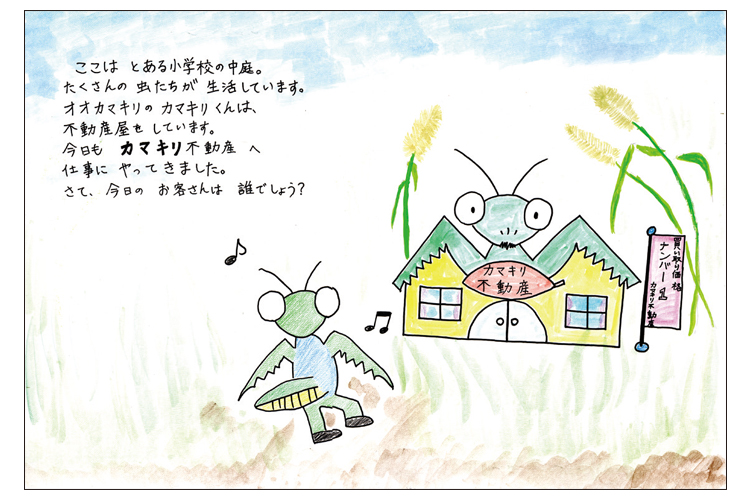 ここは とある小学校の中庭。
たくさんの 虫たちが 生活しています。
オオカマキリの カマキリくんは、
不動産屋を しています。
今日も カマキリ不動産 へ
仕事に やってきました。
さて、今日の お客さんは 誰でしょう?
カマキリ
不動産
買い取り価格
ナンバー
カマキリ不動産